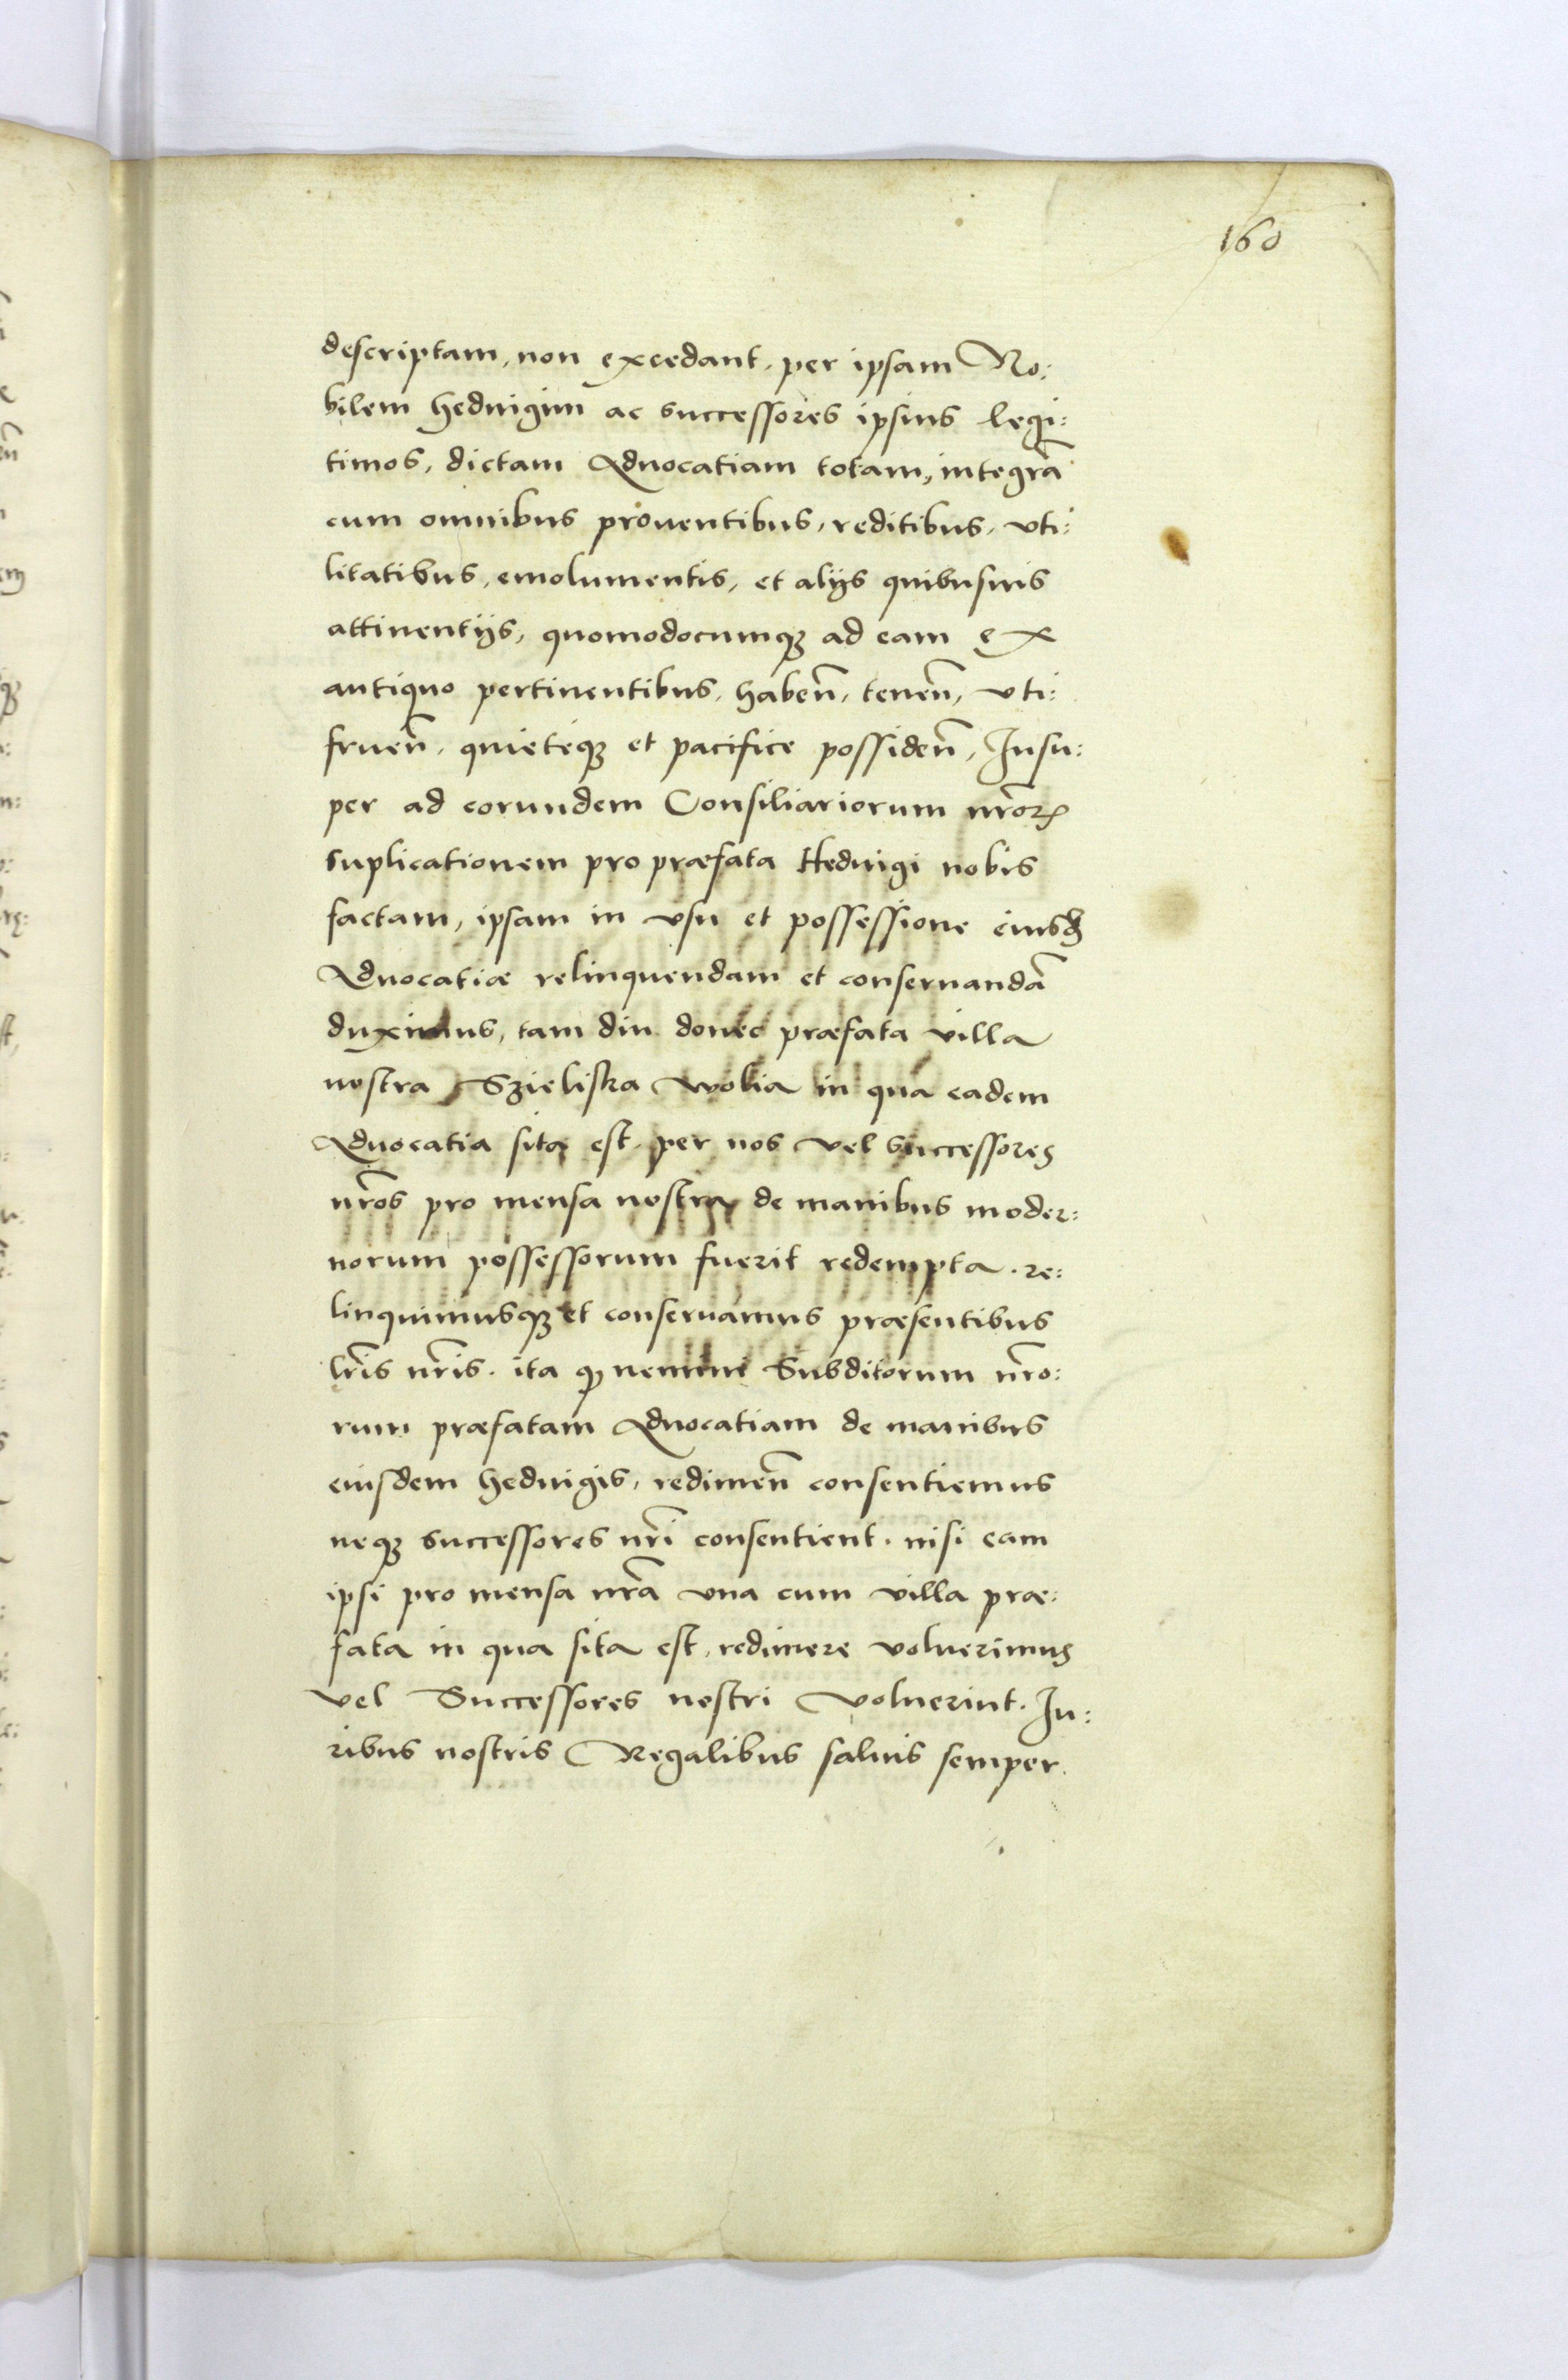 160
descriptam, non excedant, per ipsam No:
bilem Heduigim ac successores ipsius legi:
timos, dictam Aduocatiam totam, integrã
cum omnibus prouentibus, reditibus, vti:
litatibus, emolumentis, et alijs quibusuis
attinentijs, quomodocumqꝫ ad eam ex
antiquo pertinentibus, habeñ, teneñ, vti:
frueñ, quieteqꝫ et pacifice possideñ, Insu:
per ad eorundem Consiliariorum nr̃oꝝ
suplicationem pro præfata Heduigi nobis
factam, ipsam in vsu et possessione eiusđ
Aduocatiæ relinquendam et conseruandã
duximus, tam diu donec præfata villa
nostra Szieliska Wolia in qua eadem
Aduocatia sita est, per nos vel successores
nr̃os pro mensa nostra de manibus moder:
norum possessorum fuerit redempta. re:
linquimusqꝫ et conseruamus præsentibus
lr̃is nr̃is. ita ꝙ nemini Subditorum nr̃o:
rum præfatam Aduocatiam de manibus
eiusdem Heduigis, redimeñ consentiemus
neqꝫ successores nr̃i consentient. nisi eam
ipsi pro mensa nr̃a vna cum villa præ:
fata in qua sita est, redimere voluerimus
vel Successores nostri voluerint. Iu:
ribus nostris Regalibus saluis semper.